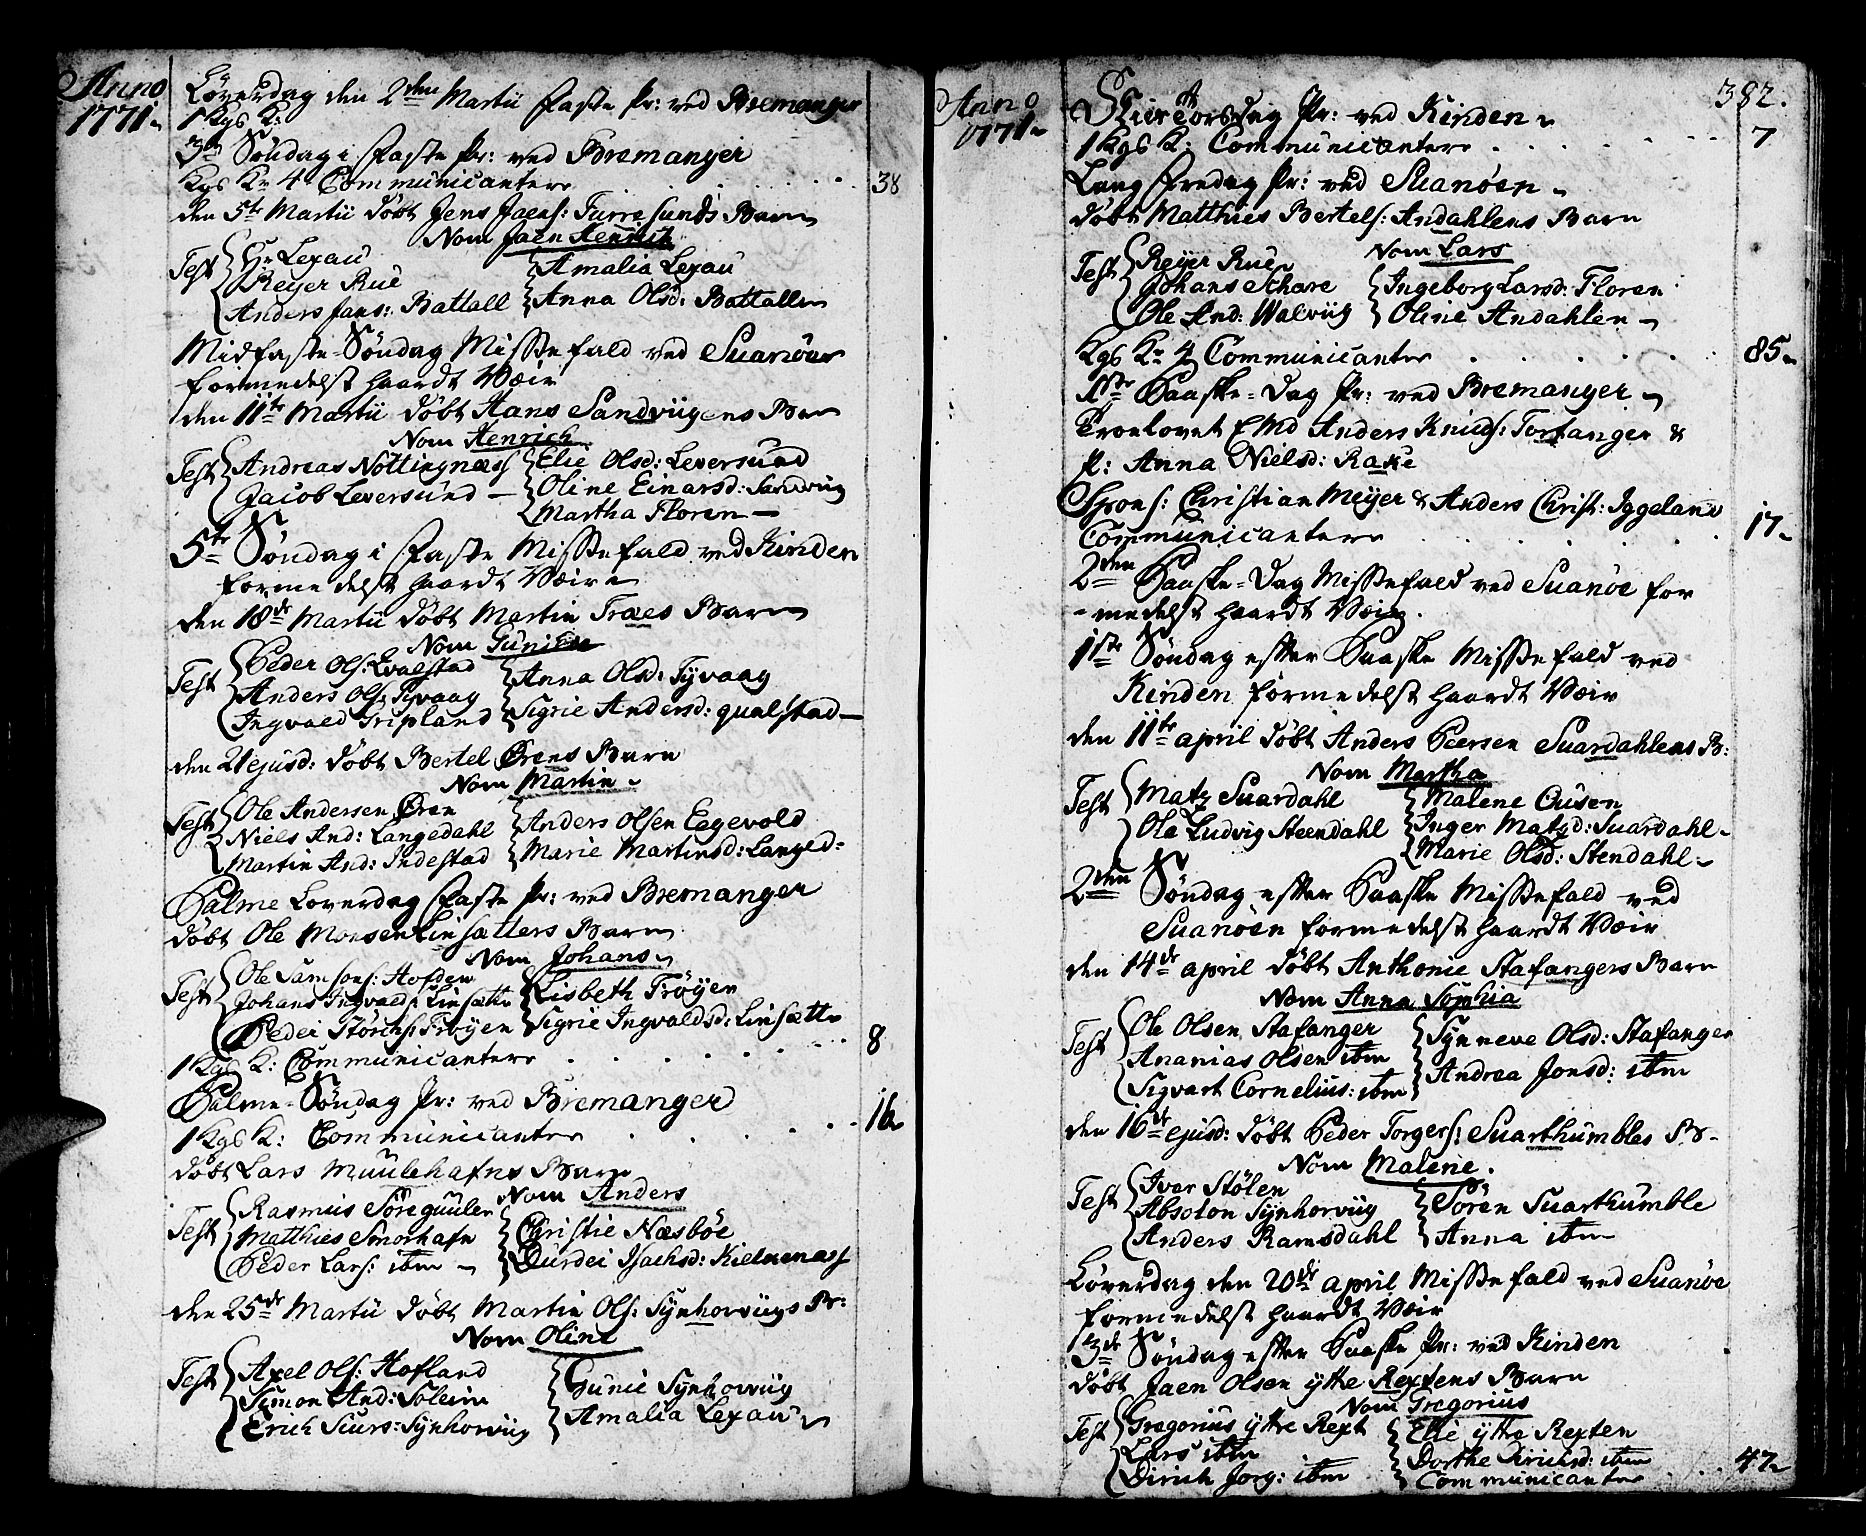 Anno
1771.
Löverdag den 2den Martii Faste Pr: ved Bremanger
1 Kgs K:
3die Söndag i Faste Pr: ved Bremanger
Kgs Kr 4 Communicantere . . . . . 38
den 5te Martii döbt Jens Jaens: Furresunds Barn
Nom Jaen Henrich
Test Hr Lexau
Reyer Rue
Anders Jans: Battall
Amalia Lexau
Anna Olsd: Battallen
Midfaste-Söndag Missefald ved Suanöen
formedelst haardt Væir
den 11te Martii döbt Hans Sandviigens Barn
Nom Henrich
Test Andreas Nöttingnæss
Jacob Leversund
Elie Olsd: Leversund
Oline Einarsd: Sandviig
Martha Floren
5te Söndag i Faste Missefald ved Kinden
formedelst haardt Væir
den 18de Martii döbt Martin Træs Barn
Nom Gunild
Test Peder Ols: Qvalstad
Anders Ols: Tyvaag
Ingvald Gripland
Anna Olsd: Tyvaag
Sigrie Andersd: qualstad
den 21 ejusd: döbt Bertel Ørens Barn
Nom Martin
Test Ole Andersen Øren
Niels And: Langedahl
Martin And: Indestad
Anders Olsen Eegevold
Marie Martinsd: Langed:
Palme Loverdag Faste Pr: ved Bremanger
döbt Ole Monsen Linsætters Barn
Nom Johans
Test Ole Samsons: Hofden
Johans Ingvalds: Linsætte
Peder Störchs: Fröyen
Lisbeth Fröyen
Sigrie Ingvaldsd: Linsætt
1 Kgs K: Communicantere . . . . . 8
Palme-Söndag Pr: ved Bremanger
1 Kgs K: Communicantere . . . . . 16
döbt Lars Muulehafns Barn
Nom Anders
Test Rasmus Söreguulen
Matthies Smorhafn
Peder Lars: ibm
Christie Næsböe
Durdei Isachsd: Kielkenæss
den 25de Martii döbt Martin Ols: Synhorviigs B:
Nom Oline
Test Axel Ols: Hofland
Simon And: Soleim
Erich Siurs: Synhorviig
Gunie Synhorviig
Amalia Lexau
382.
Anno
1771.
Skiertorsdag Pr: ved Kinden
1 Kgs K: Communicantere . . . . . 7
Lang Fredag Pr: ved Suanöen
döbt Matthies Bertels: Andahlens Barn
Nom Lars
Test Reyer Rue
Johans Schare
Ole And: Walviig
Ingeborg Larsd: Floren
Oline Andahlen
Kgs Kr 4 Communicantere . . . . . 85
1ste Paaske-Dag Pr: ved Bremanger
Troelovet Emd Anders Knuds: Torfanger &
p: Anna Nielsd: Rake
Spons: Christian Meyer & Anders Christ: Iggeland
Communicantere . . . . . 17
2den Paaske-Dag Missefald ved Suanöe for
-medelst haardt Væir.
1ste Söndag efter Paaske Missefald ved
Kinden formedelst haardt Væir
den 11te april döbt Anders Peersen Suardahlens B:
Nom Martha
Test Matz Suardahl
Ole Ludvig Steendahl
Malene Ousen
Inger Matzd: Suardahl
Marie Olsd: Stendahl
2den Söndag efter Paaske Missefald ved
Suanöen formedelst haardt Væir
den 14de april döbt Anthonie Stafangers Barn
Nom Anna Sophia
Test Ole Olsen Stafanger
Ananias Olsen ibm
Sigvart Cornelius: ibm
Synneve Olsd: Stafanger
Andrea Jonsd: ibm
den 16de ejusd: döbt Peder Torgers: Suarthumbles B
Nom Malene.
Test Iver Stölen
Absolon Synhorviig
Anders Ramsdahl
Sören Suarthumble
Anna ibm
Löverdag den 20de april Missefald ved Suanöe
formedelst haardt Væir
3de Söndag efter Paaske Pr: ved Kinden
döbt Jaen Olsen ytte Rextens Barn
Nom Gregorius
Test Gregorius ytte Rext
Lars ibm
Dirich Jorg: ibm
Elie ytte Rexten
Dorthe Dirichsd: ibm
Communicantere . . . 47